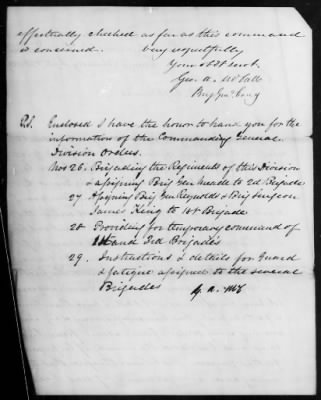 effectually checked as far as this command
is concerned. Very respectfully
Your obt servt
Geo. A. McCall
Brig Genl Comg
P.S. Enclosed I have the honor to hand you for the
information of the Commanding General
Division Orders.
Nos 26. Brigading the Regiments of this Division
& assigning Brig Gen Meade to 2d Brigade
27 Assigning Brig Gen Reynolds & Brig Surgeon
James King to 1st Brigade
28 Providing for temporary command of
1st and 3rd Brigades
29. Instructions & details for Guard
& fatigue assigned to the several
Brigades G. A. McC